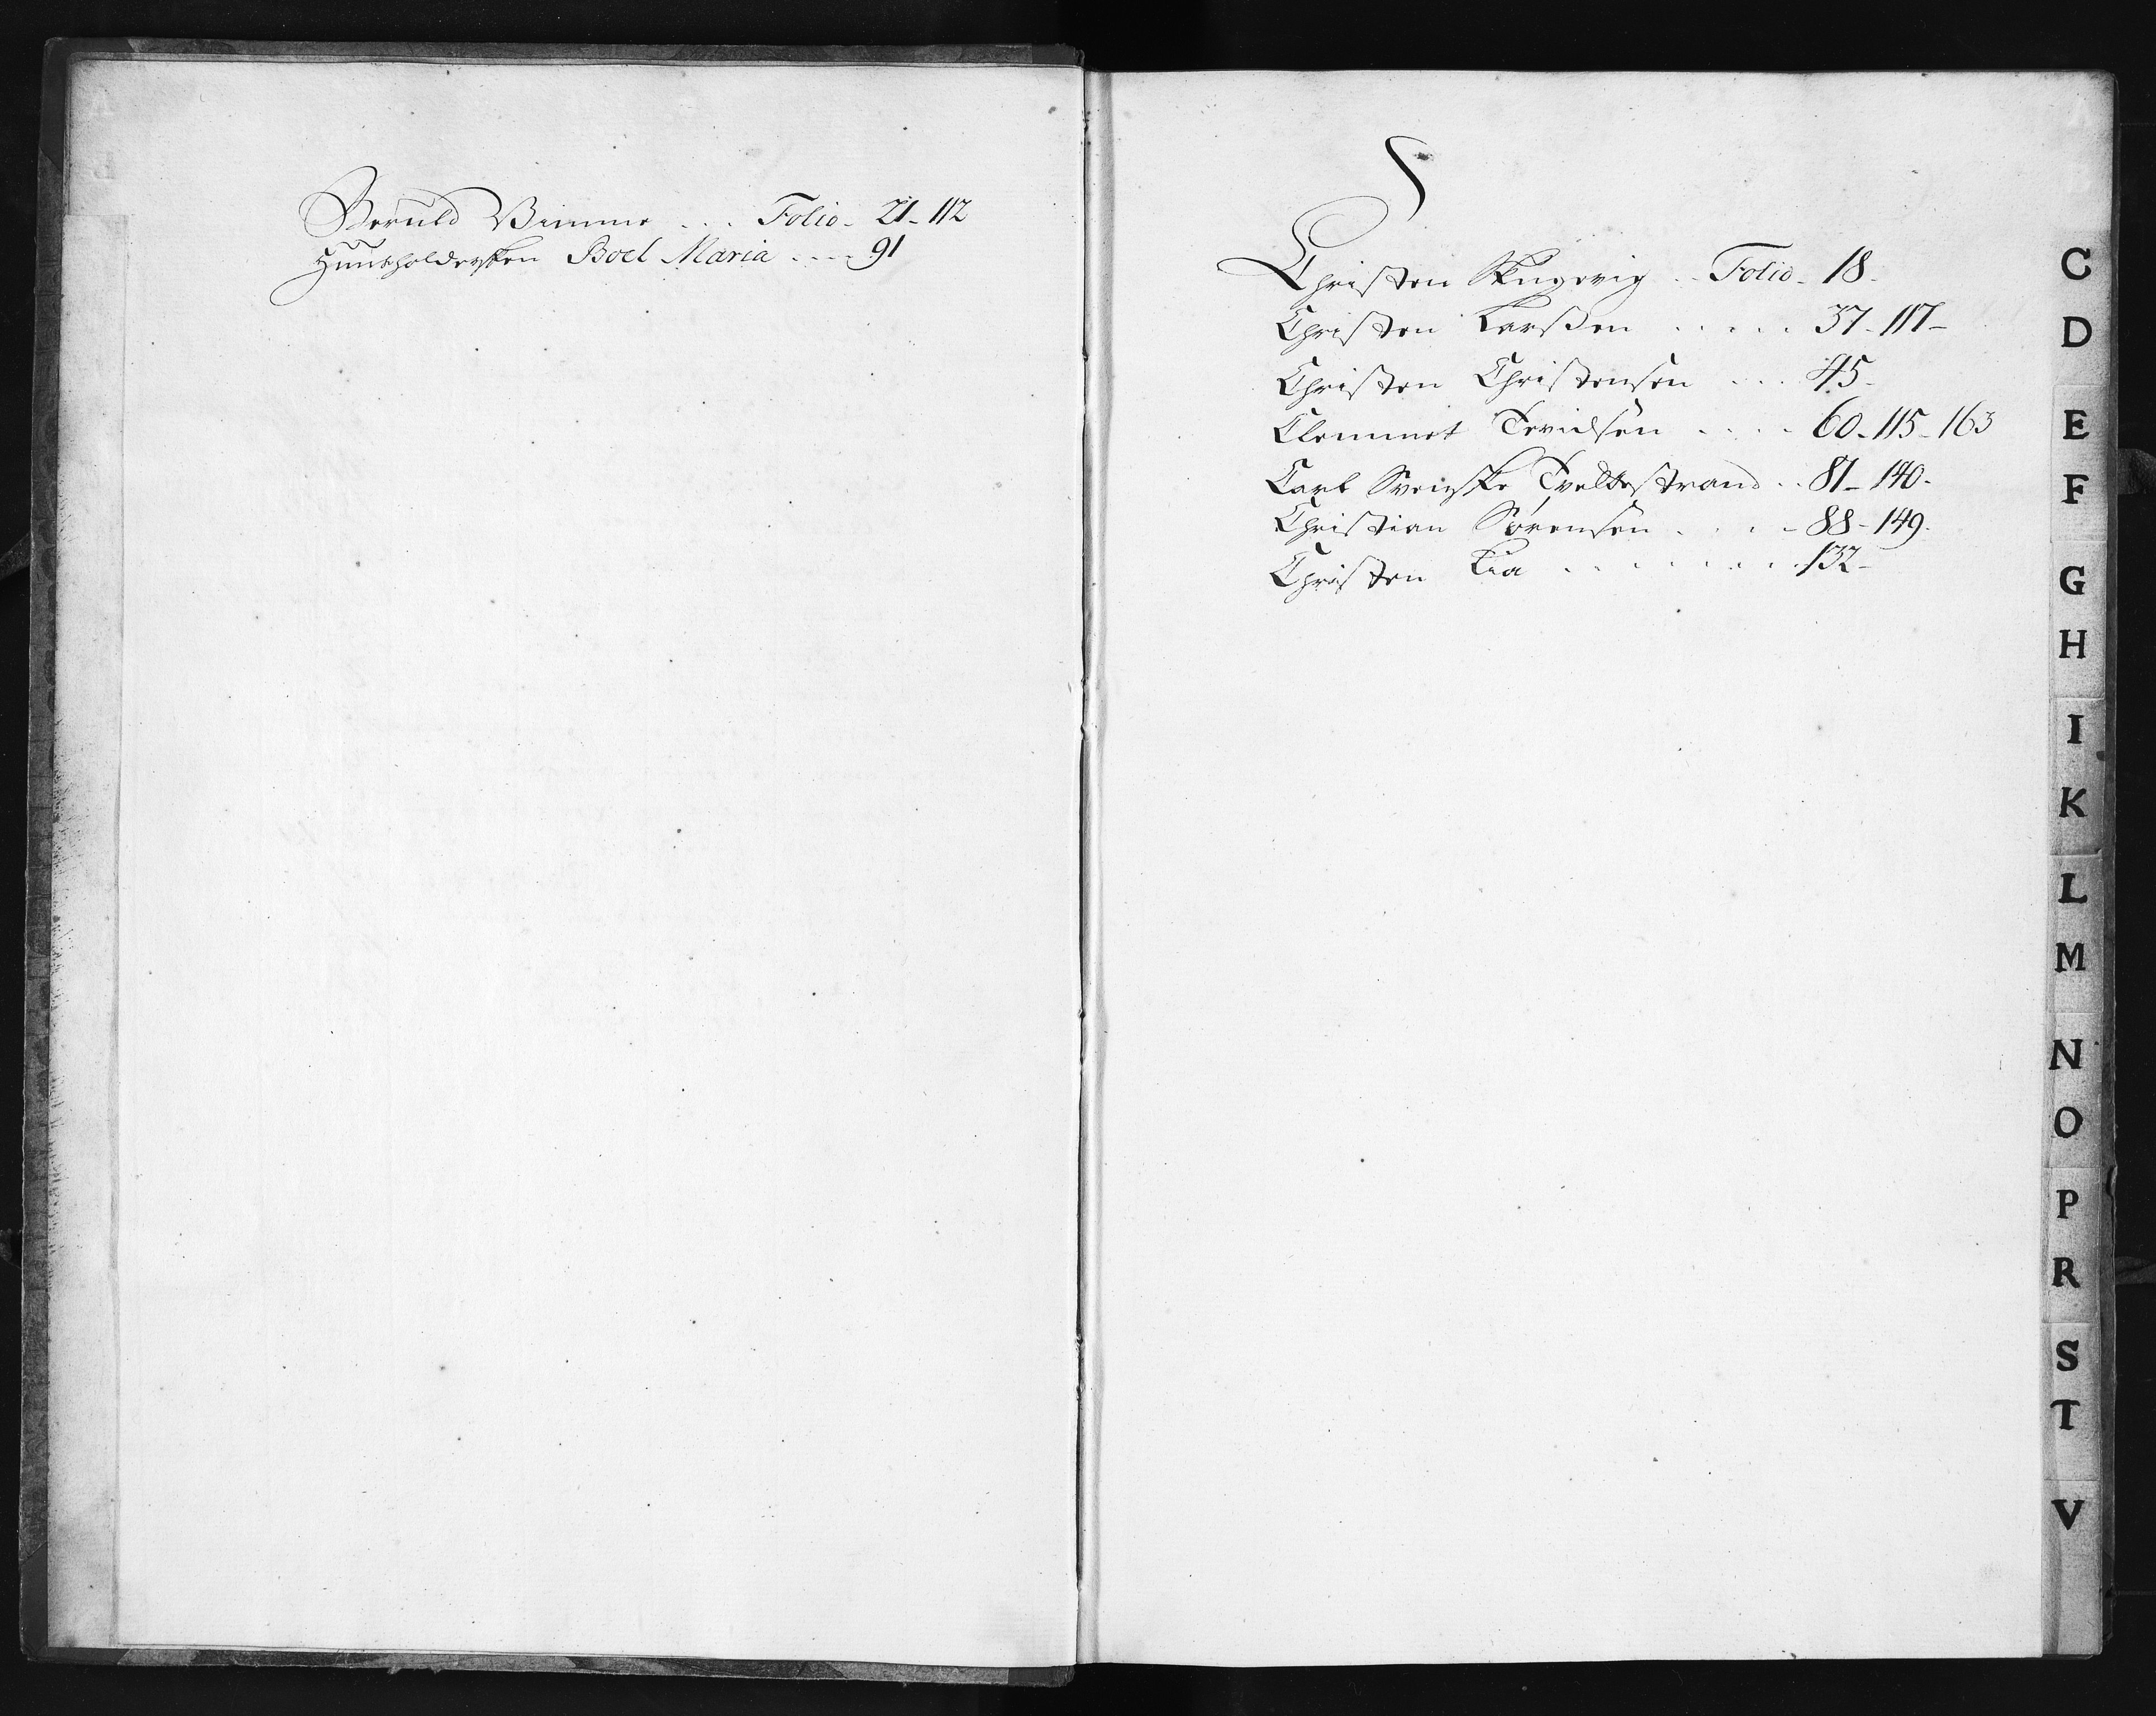 Beruld Bimme . . . Folio - 21 - 112
Huusholdersken Boel Maria - - - - 91
Christen Skugevig . . Folio - 18 -
Christen Larssen . . . . . 37 - 117 -
Christen Christensen . . . 45 -
Clemmet Tevidsen . . . . 60 - 115 - 163
Carl Svenske Tvedtestrand . . 81 - 140 -
Christian Sørensen . . . . 88 - 149 -
Christen Lia . . . . . . . . 132 -
C
D
E
F
G
H
I
K
L
M
N
O
P
R
S
T
V